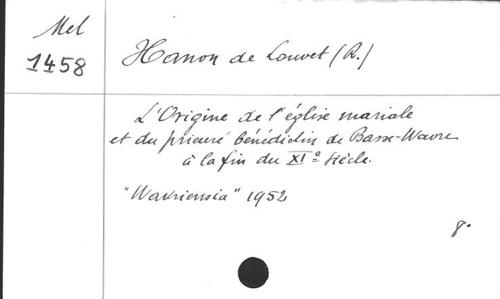 Mel
1458
Hanon de Louvet (R.)
L'Origine de l'église mariale
et du prieuré bénédictin de Basse-Wavre
à la fin du XIe Siècle.
"Wavriensia" 1952
8°